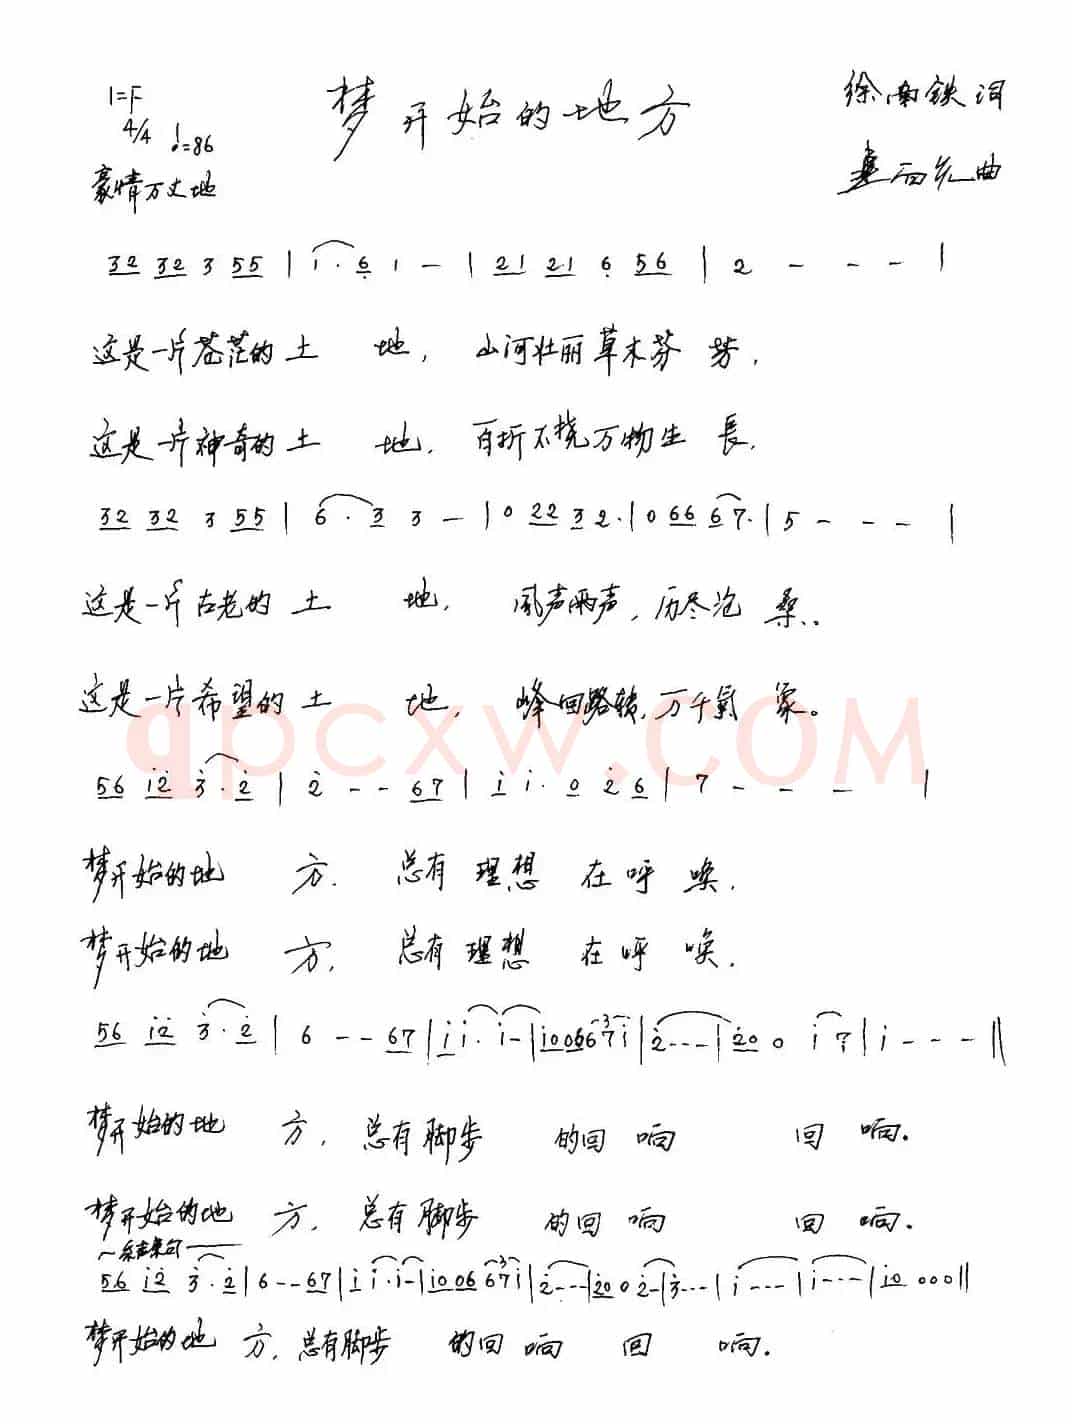 1=F
梦开始的地方
徐南铁词
4/4 ♩=86
豪情万丈地
曲
32 32 3 55 | 1 · 6 1 — | 21 21 6 56 | 2 - - - |
这是一片苍茫的土 地, 山河壮丽草木芬 芳,
这是一片神奇的土 地, 百折不挠万物生 長,
32 32 3 55 | 6 · 3 3 — | 0 22 3 2· | 0 66 67· | 5 - - - |
这是一片古老的 土 地, 風声雨声, 历尽沧 桑..
这是一片希望的 土 地, 峰回路转, 万千氣 象。
qpcxw.COM
56 i2 3·2 | 2 - - 67 | i i· 0 2 6 | 7 - - - |
梦开始的地 方. 总有 理想 在呼 唤,
梦开始的地 方, 总有 理想 在呼 唤.
56 i2 3·2 | 6 - - 67 | i i· i - | i0 06 3 67i | 2 - - - | 20 0 i 7 | i - - - ‖
梦开始的地 方, 总有脚步 的回 响 回 响.
梦开始的地 方, 总有脚步 的回 响 回 响.
~结束句
56 i2 3·2 | 6 - - 67 | i i· i - | i0 06 3 67i | 2 - - - | 20 0 2 - | 3 - - - | i - - - | i - - - | i0 0 0 0 ‖
梦开始的地 方, 总有脚步 的回 响 回 响.